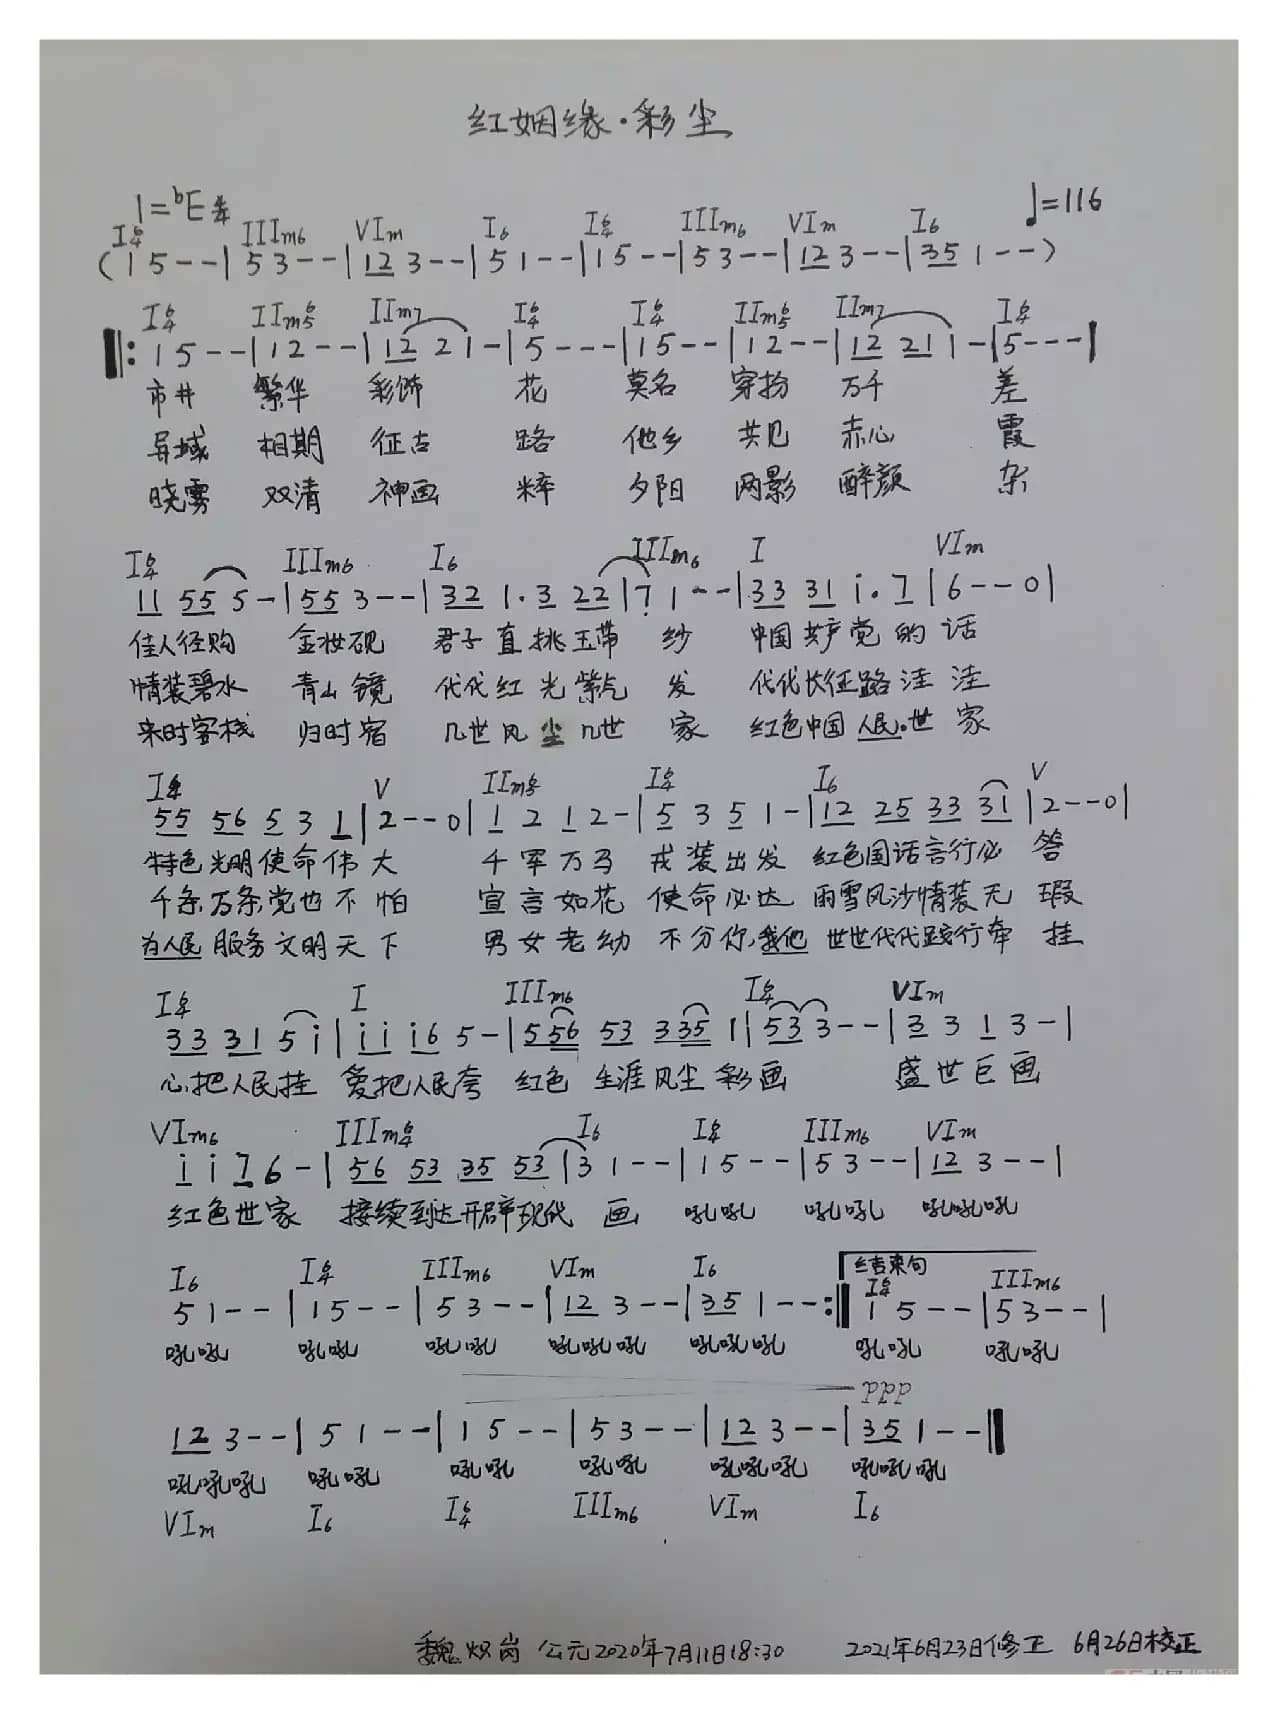 红姻缘·彩尘
1=bE 4/4 ♩=116
I6/4 IIIm6 VIm I6 I6/4 IIIm6 VIm I6
(1 5 - - | 5 3 - - | 12 3 - - | 5 1 - - | 1 5 - - | 5 3 - - | 12 3 - - | 35 1 - - )
I6/4 IIm6/5 IIm7 I6/4 I6/4 IIm6/5 IIm7 I6/4
‖: 1 5 - - | 1 2 - - | 12 2 1 - | 5 - - - | 1 5 - - | 1 2 - - | 12 21 1 - | 5 - - - |
市井 繁华 彩饰 花 莫名 穿扮 万千 差
异域 相期 征古 路 他乡 共见 赤心 霞
晓雾 双清 神画 粹 夕阳 两影 醉颜 杂
I6/4 IIIm6 I6 IIIm6 I VIm
11 55 5 - | 55 3 - - | 32 1. 3 22 | 7 1 - - | 33 31 i. 7 | 6 - - 0 |
佳人径购 金妆砚 君子直挑玉带 纱 中国共产党的话
情装碧水 青山镜 代代红光紫气 发 代代长征路洼洼
来时客栈 归时宿 几世风尘几世 家 红色中国人民·世家
I6/4 V IIm6/5 I6/4 I6 V
55 56 5 3 1 | 2 - - 0 | 1 2 1 2 - | 5 3 5 1 - | 12 25 33 31 | 2 - - 0 |
特色光明使命伟大 千军万马 戎装出发 红色国话言行必 答
千条万条党也不怕 宣言如花 使命必达 雨雪风沙情装无 瑕
为人民服务文明天下 男女老幼 不分你,我他 世世代代践行牵 挂
I6/4 I IIIm6 I6/4 VIm
33 31 5 i | i i i6 5 - | 556 53 335 1 | 53 3 - - | 3 3 1 3 - |
心把人民挂 爱把人民夸 红色 生涯风尘彩画 盛世巨画
VIm6 IIIm6/4 I6 I6/4 IIIm6 VIm
i i 7 6 - | 56 53 35 53 | 3 1 - - | 1 5 - - | 5 3 - - | 12 3 - - |
红色世家 接续到达开辟现代 画 吼吼 吼吼 吼吼吼
I6 I6/4 IIIm6 VIm I6 结束句 I6/4 IIIm6
5 1 - - | 1 5 - - | 5 3 - - | 12 3 - - | 35 1 - - :‖ 1 5 - - | 5 3 - - |
吼吼 吼吼 吼吼 吼吼吼 吼吼吼 吼吼 吼吼
ppp
12 3 - - | 5 1 - - | 1 5 - - | 5 3 - - | 12 3 - - | 35 1 - - ‖
吼吼吼 吼吼 吼吼 吼吼 吼吼吼 吼吼吼
VIm I6 I6/4 IIIm6 VIm I6
魏炽岗 公元2020年7月11日18:30 2021年6月23日修正 6月26日校正